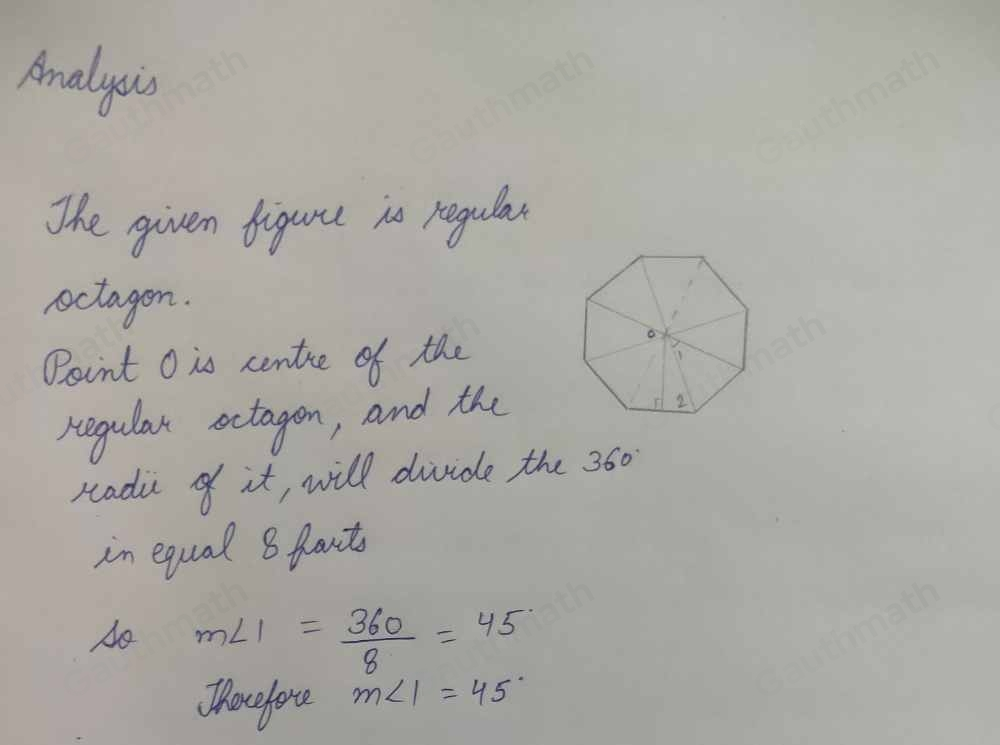 Analysis
The given figure is regular
octagon.
Point O is centre of the
regular octagon, and the
radii of it, will divide the 360°
in equal 8 parts
So m∠1 = 360/8 = 45°
Therefore m∠1 = 45°
O
1
2
Gauthmath